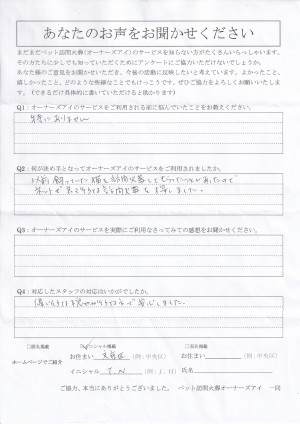 あなたのお声をお聞かせください
まだまだペット訪問火葬(オーナーズアイ)のサービスを知らない方がたくさんいらっしゃいます。
その方たちに少しでも知っていただくためにアンケートにご協力いただけないでしょうか。
あなた様のご意見をお聞かせいただき、今後の活動に反映したいと考えています。よかったこと、
嬉しかったこと、どのような些細なことでもけっこうです。ぜひご協力をよろしくお願いいたします。
(できるだけ具体的に書いていただけると助かります)
Q1:オーナーズアイのサービスをご利用される前に悩んでいたことをお教えください。
特にありません
Q2:何が決め手となってオーナーズアイのサービスをご利用されましたか。
以前飼っていた猫を訪問火葬してもらったことがあったので
ネットで
Q3:オーナーズアイのサービスを実際にご利用なさってみての感想をお聞かせください。
Q4:対応したスタッフの対応はいかがでしたか。
安心しました。
□匿名掲載 イニシャル掲載 □実名掲載
ホームページでご紹介
お住まい (例:中央区) お住まい (例:中央区)
イニシャル T.N (例:J.H) 氏名
ご協力、本当にありがとうございました。 ペット訪問火葬オーナーズアイ 一同